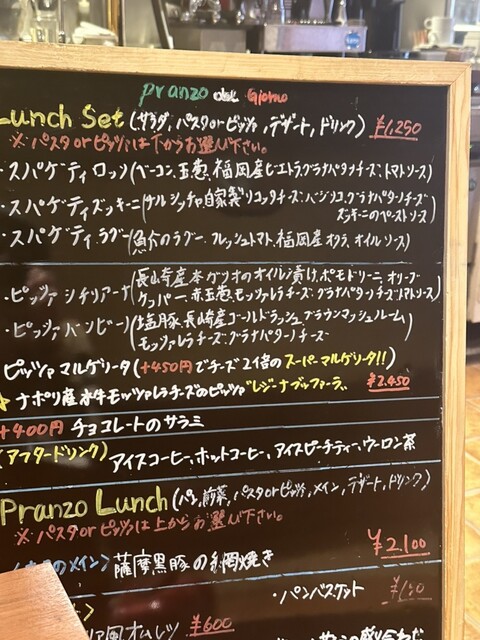 Pranzo del Giorno
Lunch Set (サラダ, パスタ or ピッツァ, デザート, ドリンク) ¥1,250
※ パスタ or ピッツァは下からお選び下さい。
・スパゲティ ロッソ (ベーコン, 玉葱, 福岡産ビエトラ, グラナパダノチーズ, トマトソース)
・スパゲティ ズッキーニ (サルシッチャ, 自家製リコッタチーズ, バジリコ, グラナパダノチーズ
ズッキーニのペーストソース)
・スパゲティ ラグー (魚介のラグー, フレッシュトマト, 福岡産オクラ, オイルソース)
・ピッツァ シチリアーナ (長崎産本グリオのオイル漬け, ポモドリーニ, オリーブ
ケッパー, 赤玉葱, モッツァレラチーズ, グラナパダノチーズ, トマトソース)
・ピッツァ バンビーノ (塩豚, 長崎産ゴールドラッシュ, ブラウンマッシュルーム
モッツァレラチーズ, グラナパダノチーズ)
ピッツァ マルゲリータ (+450円でチーズ2倍のスーパーマルゲリータ!!)
☆ ナポリ産水牛モッツァレラチーズのピッツァ "レジーナ ブッファーラ" ¥2,450
+400円 チョコレートのサラミ
(アフタードリンク) アイスコーヒー, ホットコーヒー, アイスピーチティー, ウーロン茶
Pranzo Lunch (パン, 前菜, パスタ or ピッツァ, メイン, デザート, ドリンク)
※ パスタ or ピッツァは上からお選び下さい。
¥2,100
のメイン) 薩摩黒豚の網焼き
・パンバスケット
風オムレツ ¥600